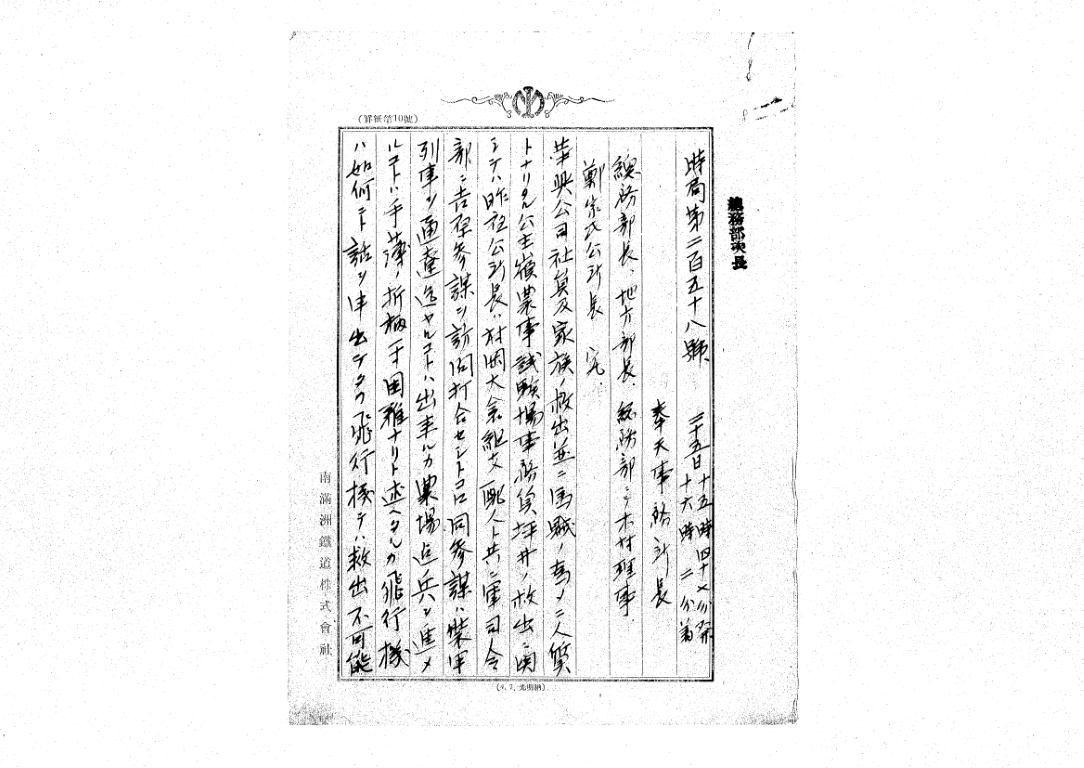 總務部次長
時局第二百五十八號
二十五日 十五時四十七分発
十六時二分着
奉天事務所長
總務部長、地方部長、総務部ニテ木村理事、
鄭家屯公所長 宛、
華興公司社員及家族ノ救出並ニ馬賊ノ為メニ人質
トナリタル公主嶺農事試験場事務員坪井ノ救出ニ関
シテハ昨夜公所長ハ村岡大倉組支配人ト共ニ軍司令
部ニ吉 参謀ヲ訪問打合セシトコロ同参謀ハ装甲
列車ヲ通遼迄ヤルコトハ出来ルカ農場迄兵ヲ進メ
ルコトハ手薄ノ折柄一寸困難ナリト述ヘタルカ飛行機
ハ如何ニト話シ申出テタリ飛行機テハ救出不可能
南滿洲鐵道株式會社